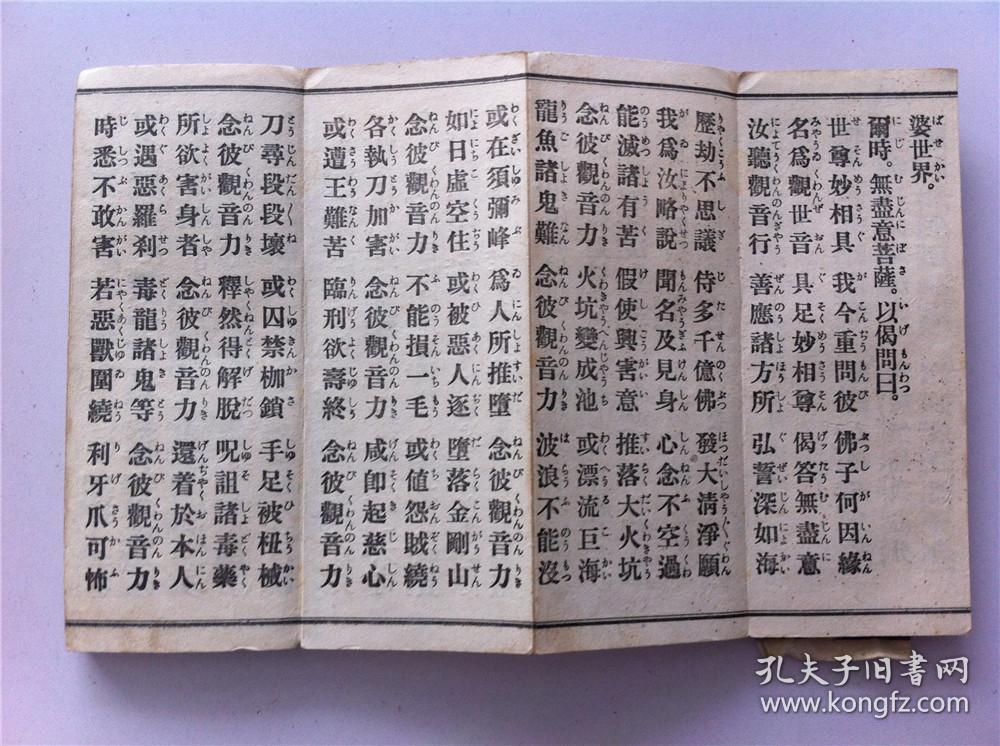 婆世界。
爾時。無盡意菩薩。以偈問曰。
世尊妙相具 我今重問彼 佛子何因緣
名爲觀世音 具足妙相尊 偈答無盡意
汝聽觀音行 善應諸方所 弘誓深如海
歷劫不思議 侍多千億佛 發大淸淨願
我爲汝略說 聞名及見身 心念不空過
能滅諸有苦 假使興害意 推落大火坑
念彼觀音力 火坑變成池 或漂流巨海
龍魚諸鬼難 念彼觀音力 波浪不能沒
或在須彌峰 爲人所推墮 念彼觀音力
如日虛空住 或被惡人逐 墮落金剛山
念彼觀音力 不能損一毛 或値怨賊繞
各執刀加害 念彼觀音力 咸卽起慈心
或遭王難苦 臨刑欲壽終 念彼觀音力
刀尋段段壞 或囚禁枷鎖 手足被杻械
念彼觀音力 釋然得解脫 呪詛諸毒藥
所欲害身者 念彼觀音力 還着於本人
或遇惡羅刹 毒龍諸鬼等 念彼觀音力
時悉不敢害 若惡獸圍繞 利牙爪可怖
孔夫子旧書网
www.kongfz.com